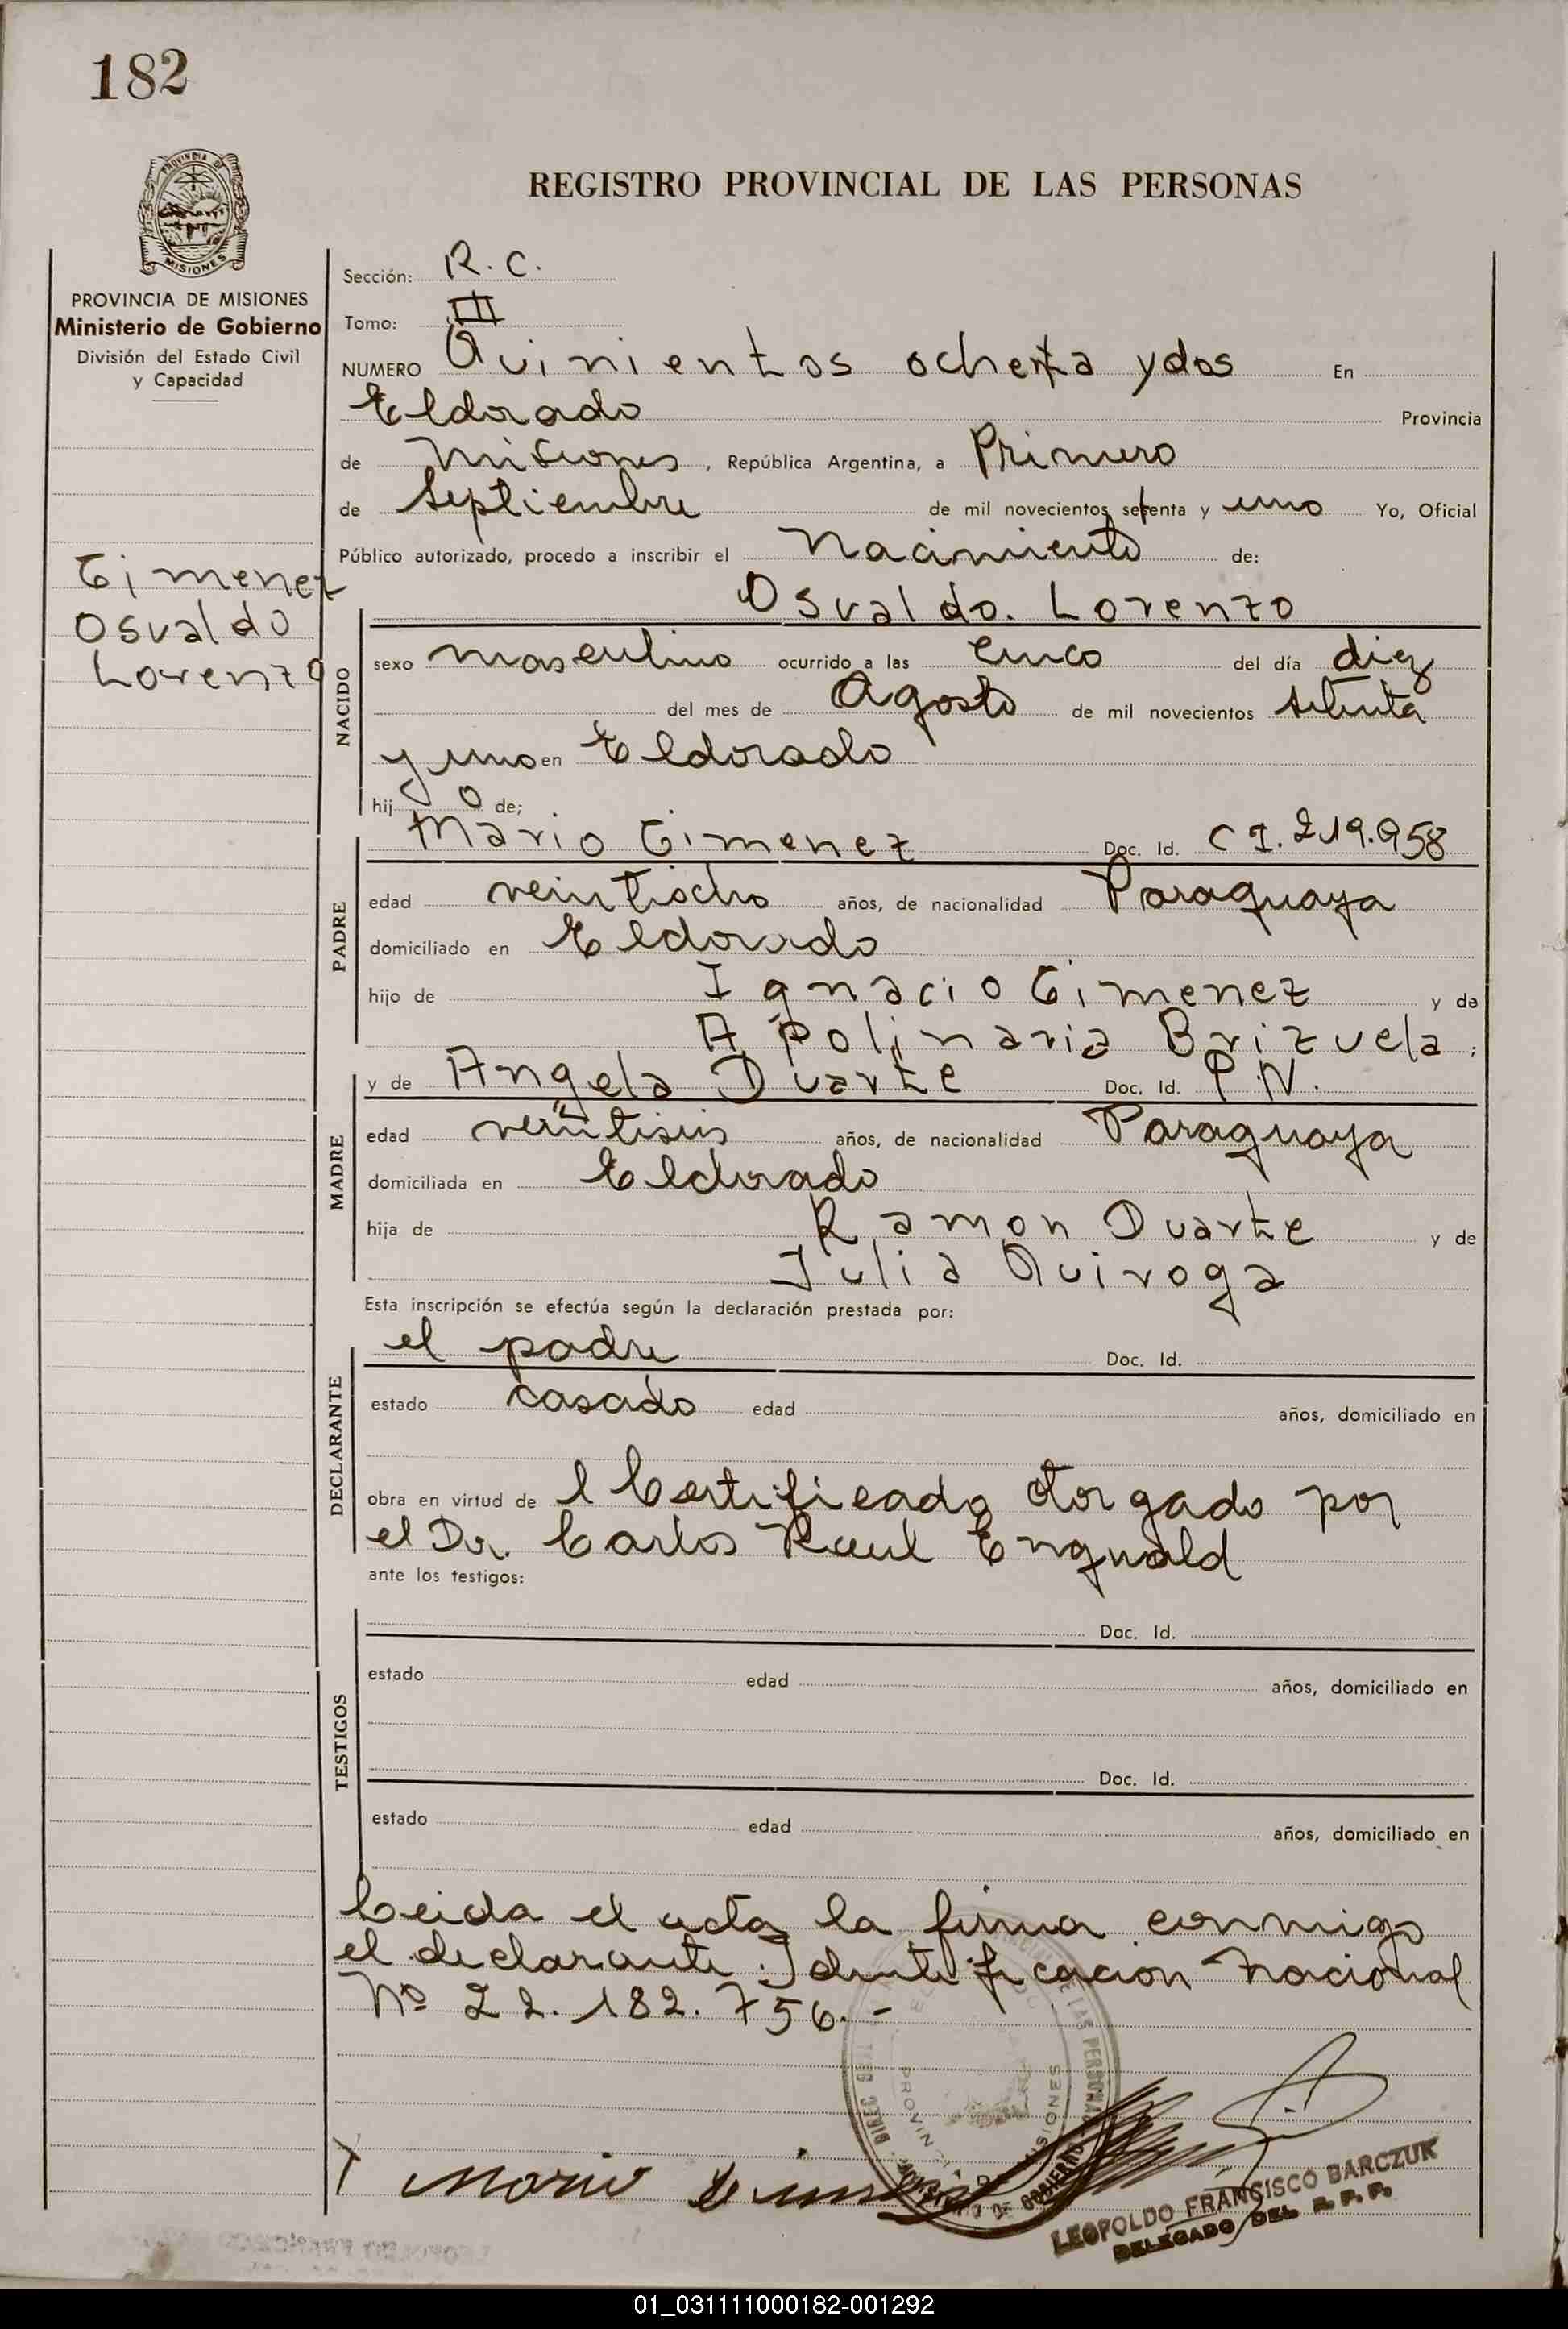 182
PROVINCIA DE MISIONES
REGISTRO PROVINCIAL DE LAS PERSONAS
PROVINCIA DE MISIONES
Ministerio de Gobierno
División del Estado Civil
y Capacidad
Gimenez
Osvaldo
Lorenzo
Sección: R. C.
Tomo: III
NUMERO Quinientos ochenta y dos En
Eldorado Provincia
de Misiones, República Argentina, a Primero
de Septiembre de mil novecientos setenta y uno Yo, Oficial
Público autorizado, procedo a inscribir el Nacimiento de:
Osvaldo. Lorenzo
NACIDO
sexo masculino ocurrido a las cinco del día diez
del mes de Agosto de mil novecientos setenta
y uno en Eldorado
hij o de;
PADRE
Mario Gimenez Doc. Id. C I. 219.958
edad veintiocho años, de nacionalidad Paraguaya
domiciliado en Eldorado
hijo de Ignacio Gimenez y de
Apolinaria Brizuela ;
MADRE
y de Angela Duarte Doc. Id. P.N.
edad veintiseis años, de nacionalidad Paraguaya
domiciliada en Eldorado
hija de Ramon Duarte y de
Julia Quiroga
Esta inscripción se efectúa según la declaración prestada por:
DECLARANTE
el padre Doc. Id.
estado casado edad años, domiciliado en
obra en virtud de l Certificado otorgado por
el Dr. Carlos Raul Engwald
ante los testigos:
TESTIGOS
Doc. Id.
estado edad años, domiciliado en
Doc. Id.
estado edad años, domiciliado en
Leida el acta la firma conmigo
el declarante. Identificacion Nacional
Nº 22.182.756.-
Mario Gimenez
LEOPOLDO FRANCISCO BARCZUK
DELEGADO DEL R. P. P.
01_031111000182-001292